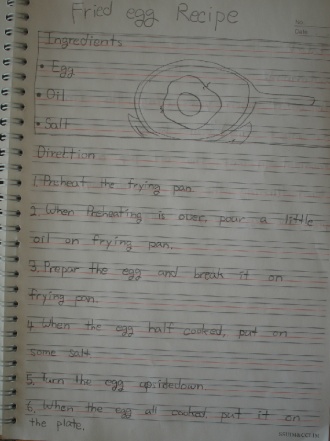 Fried egg Recipe
No.
Date
Ingredients
• Egg
• Oil
• Salt
Direction
1. Preheat the frying pan.
2. When Preheating is over, pour a little
oil on frying pan.
3. Prepar the egg and break it on
frying pan.
4. When the egg half cooked, put on
some salt
5. Turn the egg upsidedown.
6. When the egg all cooked put it on
the plate.